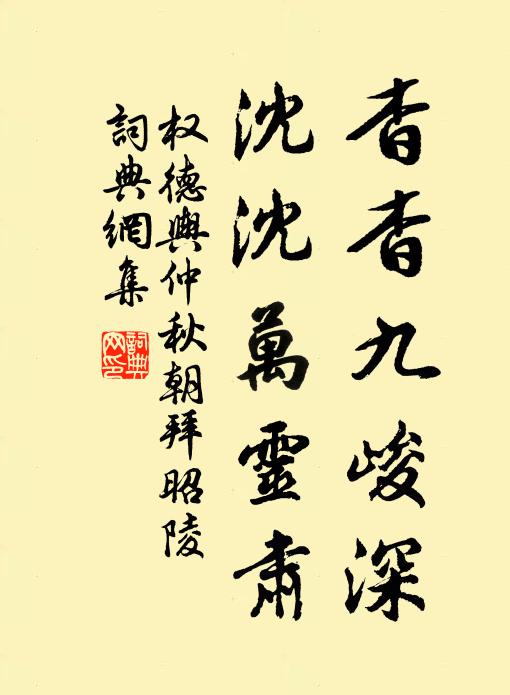 杳杳九峻深
沈沈萬靈肅
权德輿仲秋朝拜昭陵
詞典網集
詞典網印